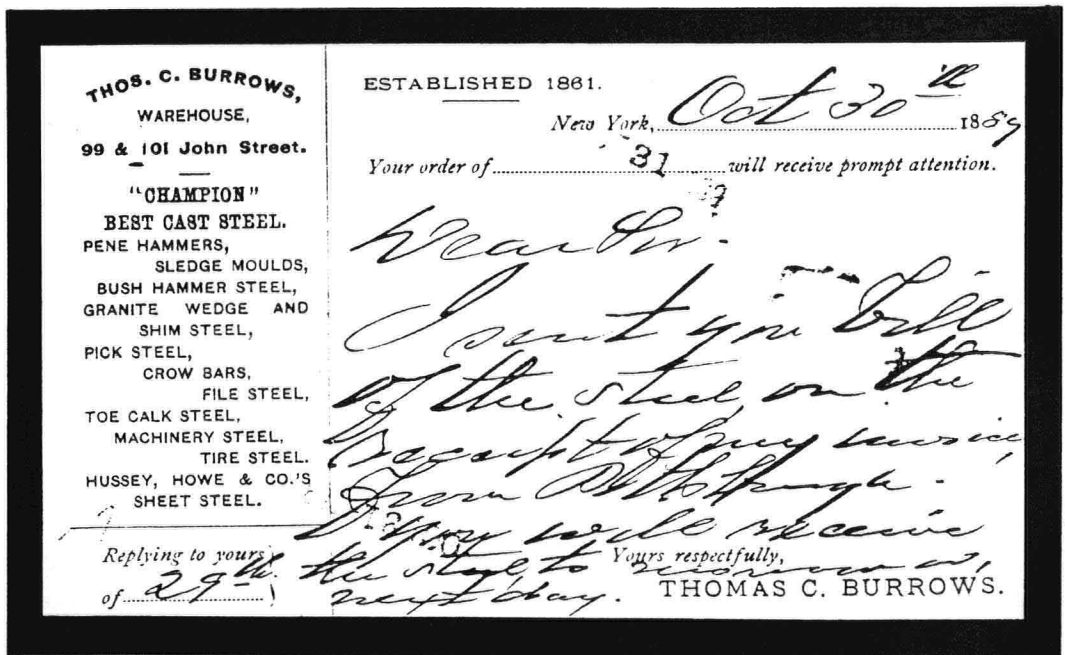 THOS. C. BURROWS,
WAREHOUSE,
99 & 101 John Street.
"CHAMPION"
BEST CAST STEEL.
PENE HAMMERS,
SLEDGE MOULDS,
BUSH HAMMER STEEL,
GRANITE WEDGE AND
SHIM STEEL,
PICK STEEL,
CROW BARS,
FILE STEEL,
TOE CALK STEEL,
MACHINERY STEEL,
TIRE STEEL.
HUSSEY, HOWE & CO.'S
SHEET STEEL.
Replying to yours
of 29th
ESTABLISHED 1861.
New York, Oct 30th 1889
Your order of 31 will receive prompt attention.
Dear Sir.
I sent you Bill
of the steel, on the
Receipt of my invoice
from Pittsburgh.
you will receive
the steel to morrow or
next day.
Yours respectfully,
THOMAS C. BURROWS.